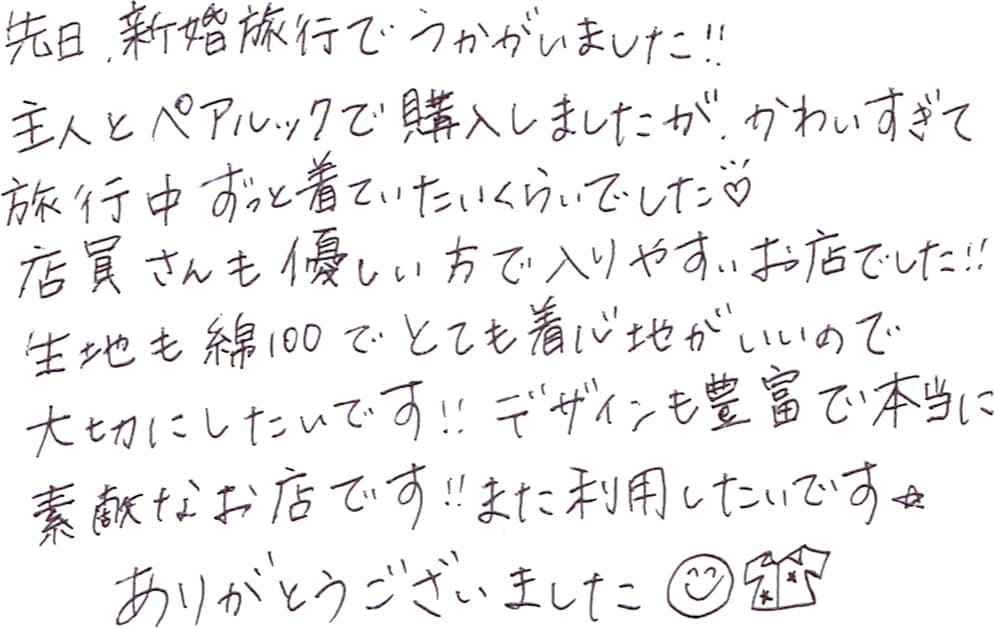 先日、新婚旅行でうかがいました!!
主人とペアルックで購入しましたが、かわいすぎて
旅行中ずっと着ていたいくらいでした♡
店員さんも優しい方で入りやすいお店でした!!
生地も綿100でとても着心地がいいので
大切にしたいです!!デザインも豊富で本当に
素敵なお店です!!また利用したいです☆
ありがとうございました